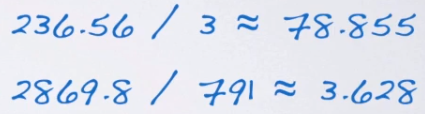 236.56 / 3 ≈ 78.855
2869.8 / 791 ≈ 3.628